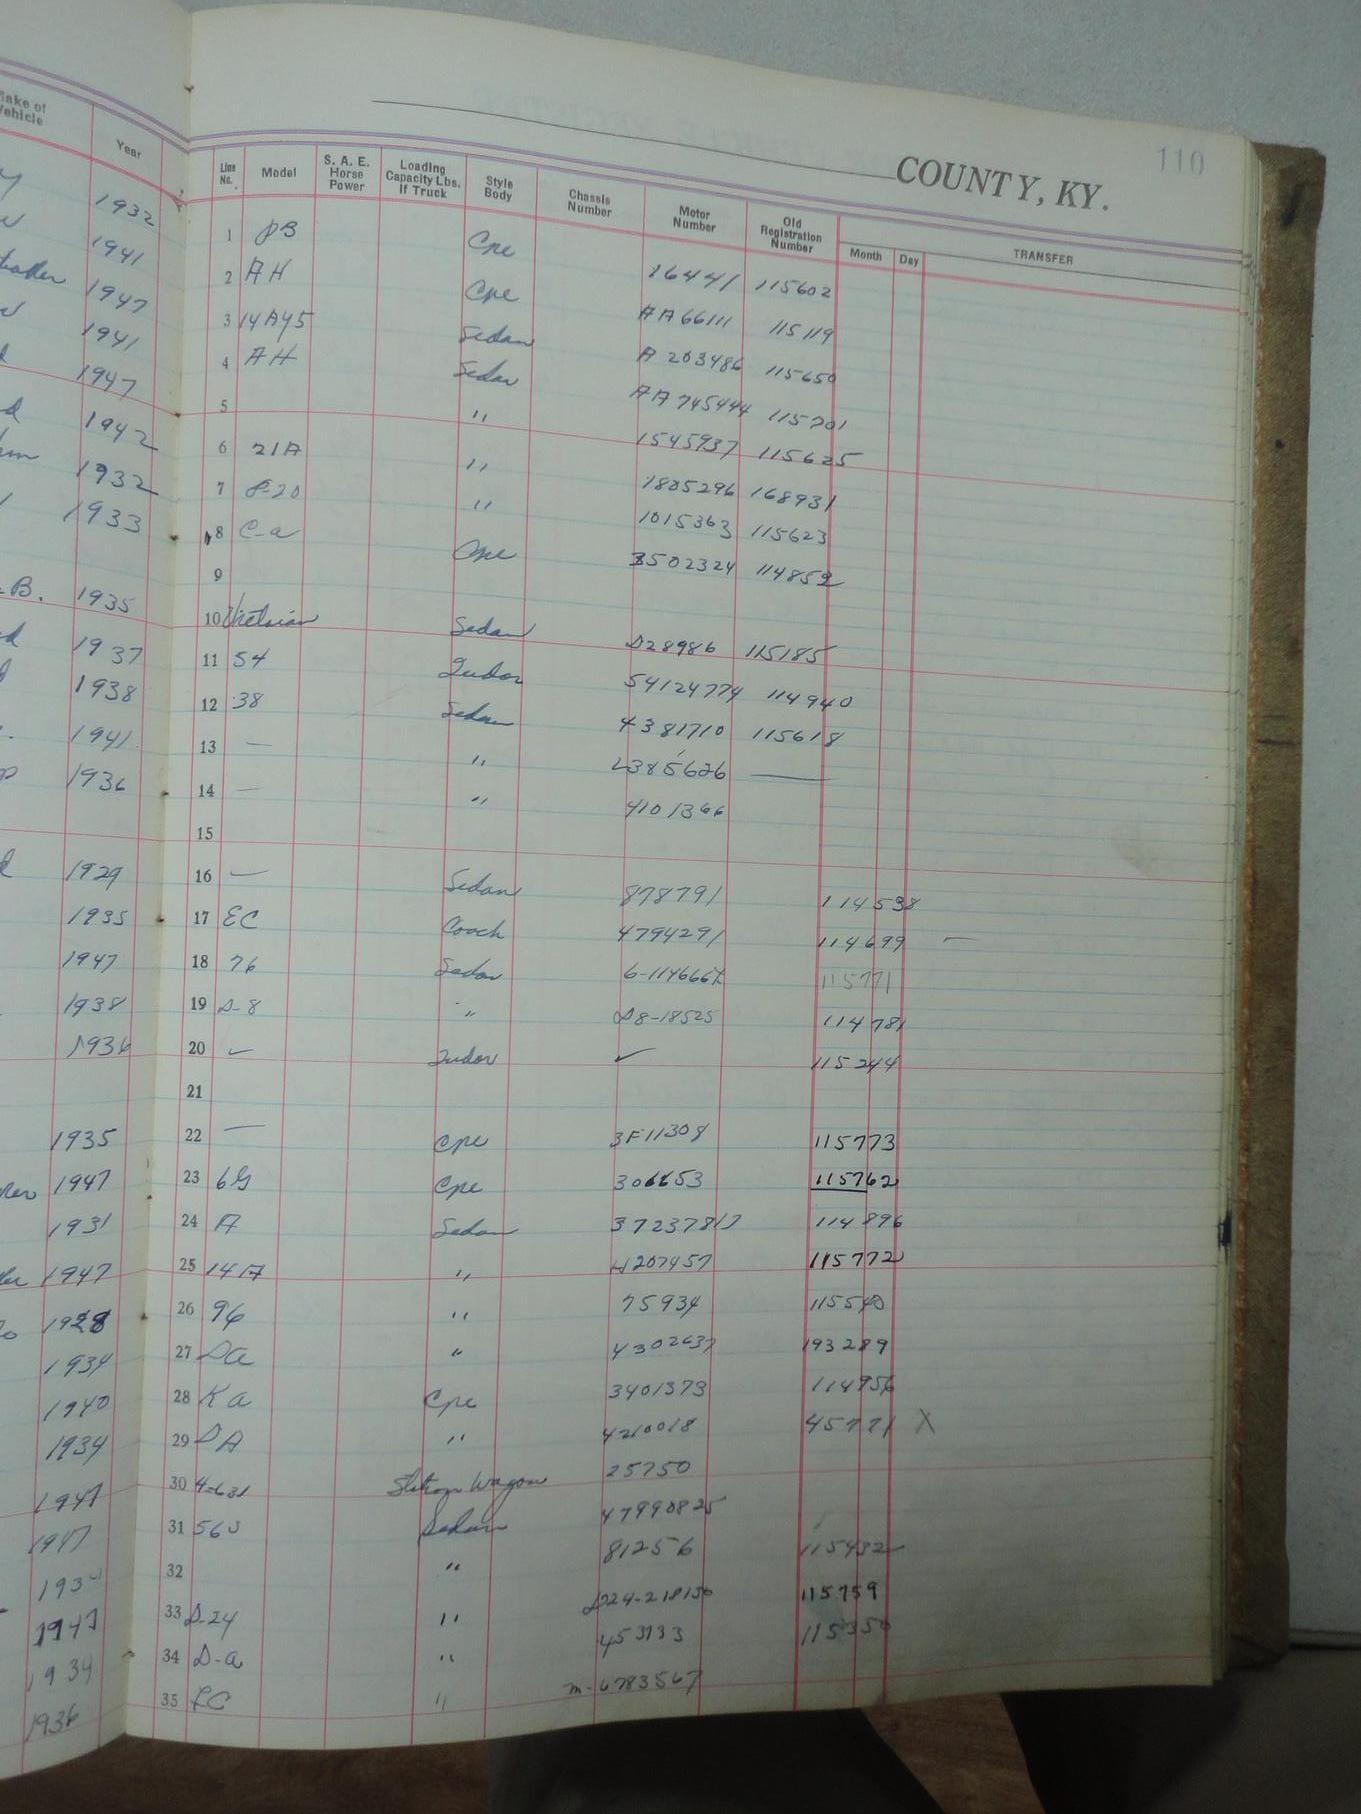 110
COUNTY, KY.
Make of Vehicle Year
Line No. Model S. A. E. Horse Power Loading Capacity Lbs. If Truck Style Body Chassis Number Motor Number Old Registration Number Month Day TRANSFER
1932 1 PB Cpe 16441 115602
1941 2 AH Cpe AA66111 115119
1947 3 14A45 Sedan A 203486 115650
1941 4 AH Sedan AA 745444 115701
1947 5 " 1545937 115625
1942 6 21A " 1805296 168931
1932 7 8-20 " 1015363 115623
1933 8 C-a Cpe 3502324 114852
9
B. 1935 10 Victorian Sedan D28986 115185
1937 11 54 Tudor 54124774 114940
1938 12 38 Sedan 4381710 115618
1941 13 — " 2385626 —
1936 14 — " 4101366
15
1929 16 — Sedan 878791 114538
1935 17 EC Coach 4794291 114699 —
1947 18 76 Sedan 115771
1938 19 D-8 " D8-18525 114781
1936 20 Tudor ✓ 115244
21
1935 22 — Cpe 3F11308 115773
1947 23 6G Cpe 115762
1931 24 A Sedan 114896
1947 25 14A " 115772
1928 26 96 " 75934 115540
1934 27 Da " 4302637 193289
1940 28 Ka Cpe 3401373 114956
1934 29 DA " 4210018 45771 X
1947 30 Station Wagon 25750
1947 31 Sedan 47990825
32 " 81256 115432
1947 33 D-24 " D24-218130 115759
1934 34 D-a " 453133 115350
1936 35 " m-6783567